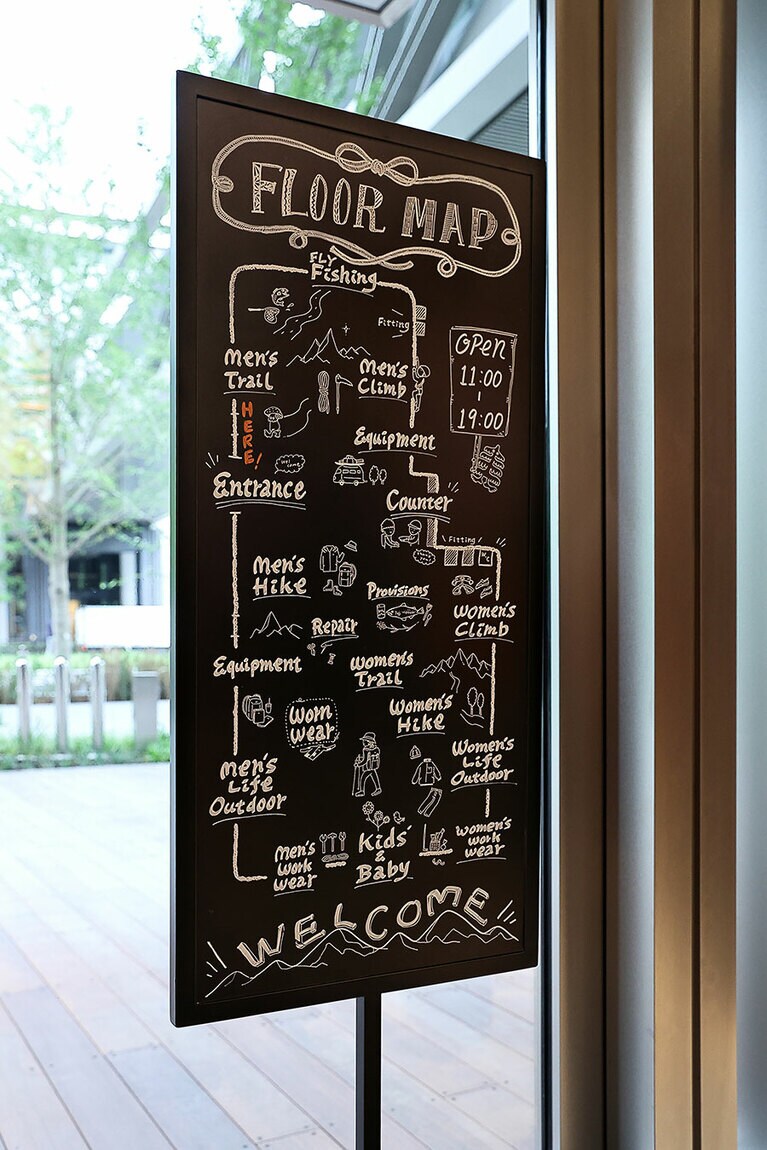 FLOOR MAP
FLY
Fishing
Fitting
Men's
Trail
Men's
Climb
OPEN
11:00
-
19:00
HERE!
Equipment
Welcome
Entrance
Counter
Fitting
WC
Men's
Hike
Provisions
Women's
Climb
Repair
Equipment
Women's
Trail
Worn
wear
Women's
Hike
Men's
Life
Outdoor
Women's
Life
Outdoor
Men's
Work
Wear
Kids'
&
Baby
Women's
Work
wear
WELCOME